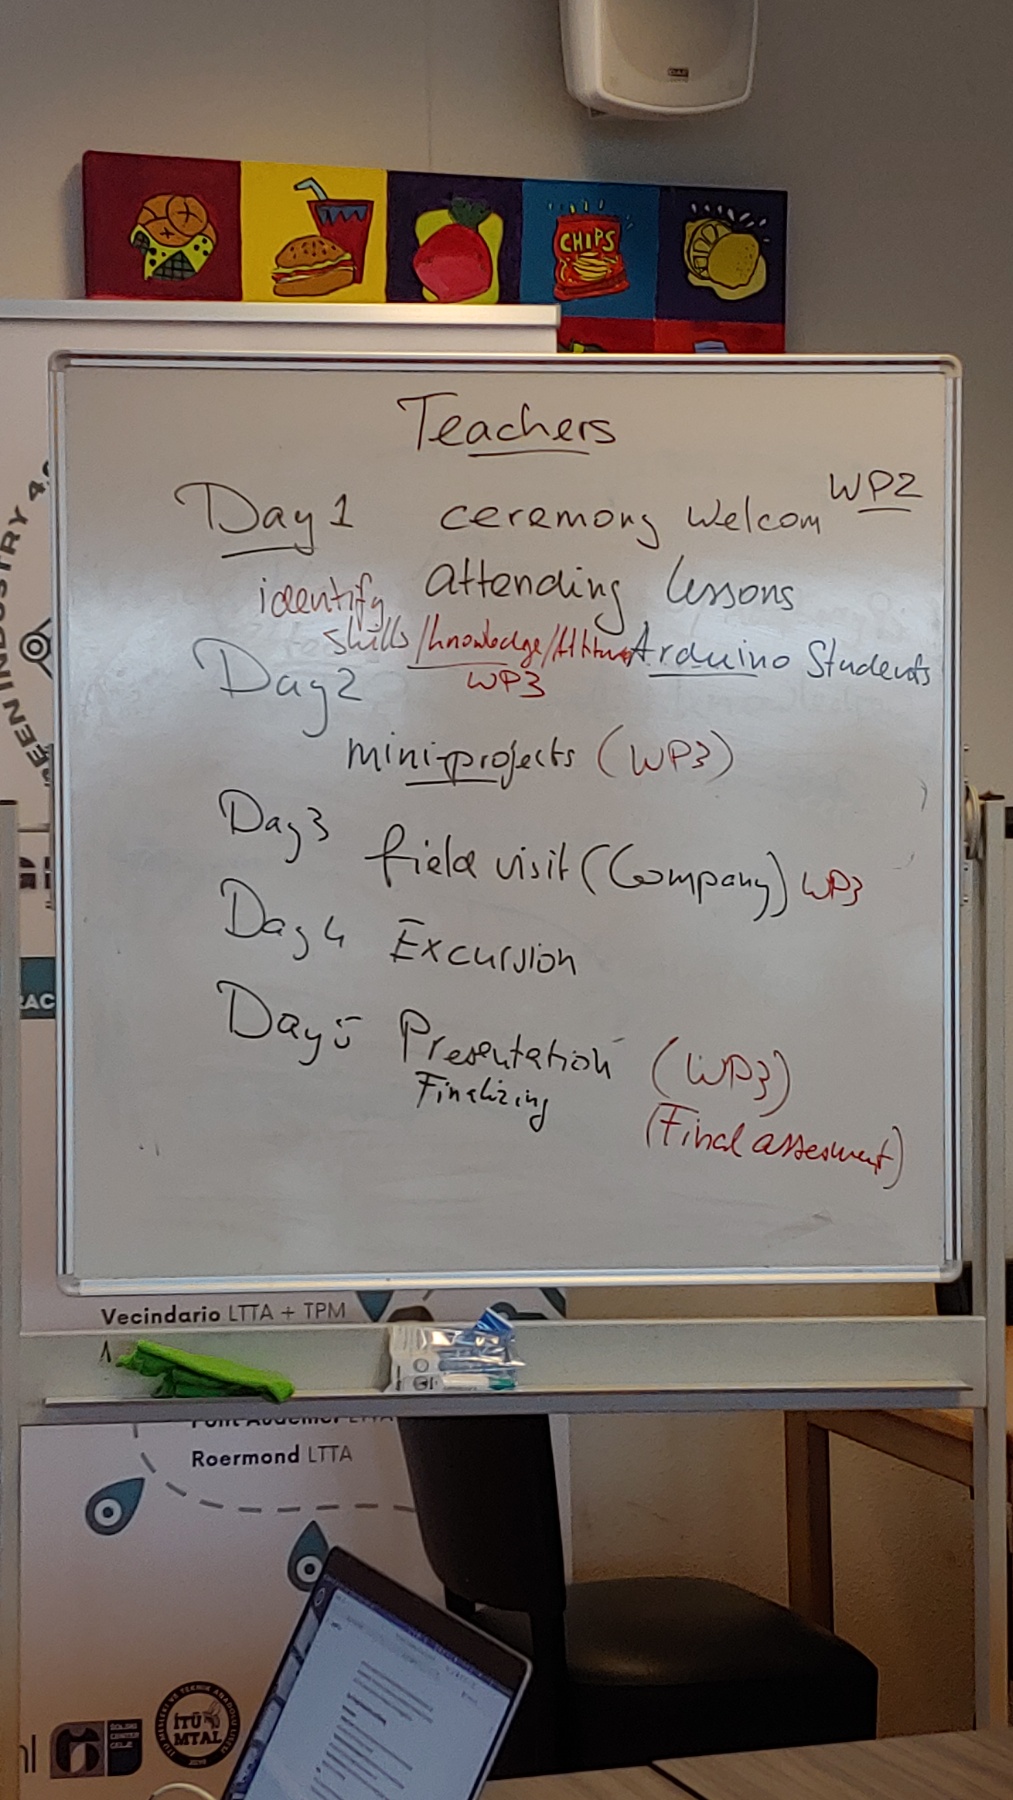 DAP
CHIPS
GREEN INDUSTRY 4.0
Teachers
WP2
Day 1 ceremony Welcom
attending lessons
identify
skills/knowledge/Attitudes
Arduino Students
Day 2
WP3
mini-projects (WP3)
Day 3 field visit (Company) WP3
Day 4 Excursion
Day 5 Presentation (WP3)
Finalizing
(Final assesment)
Vecindario LTTA + TPM
Pont Audemer LTTA
Roermond LTTA
ŠOLSKI
CENTER
CELJE
İTÜ
MTAL